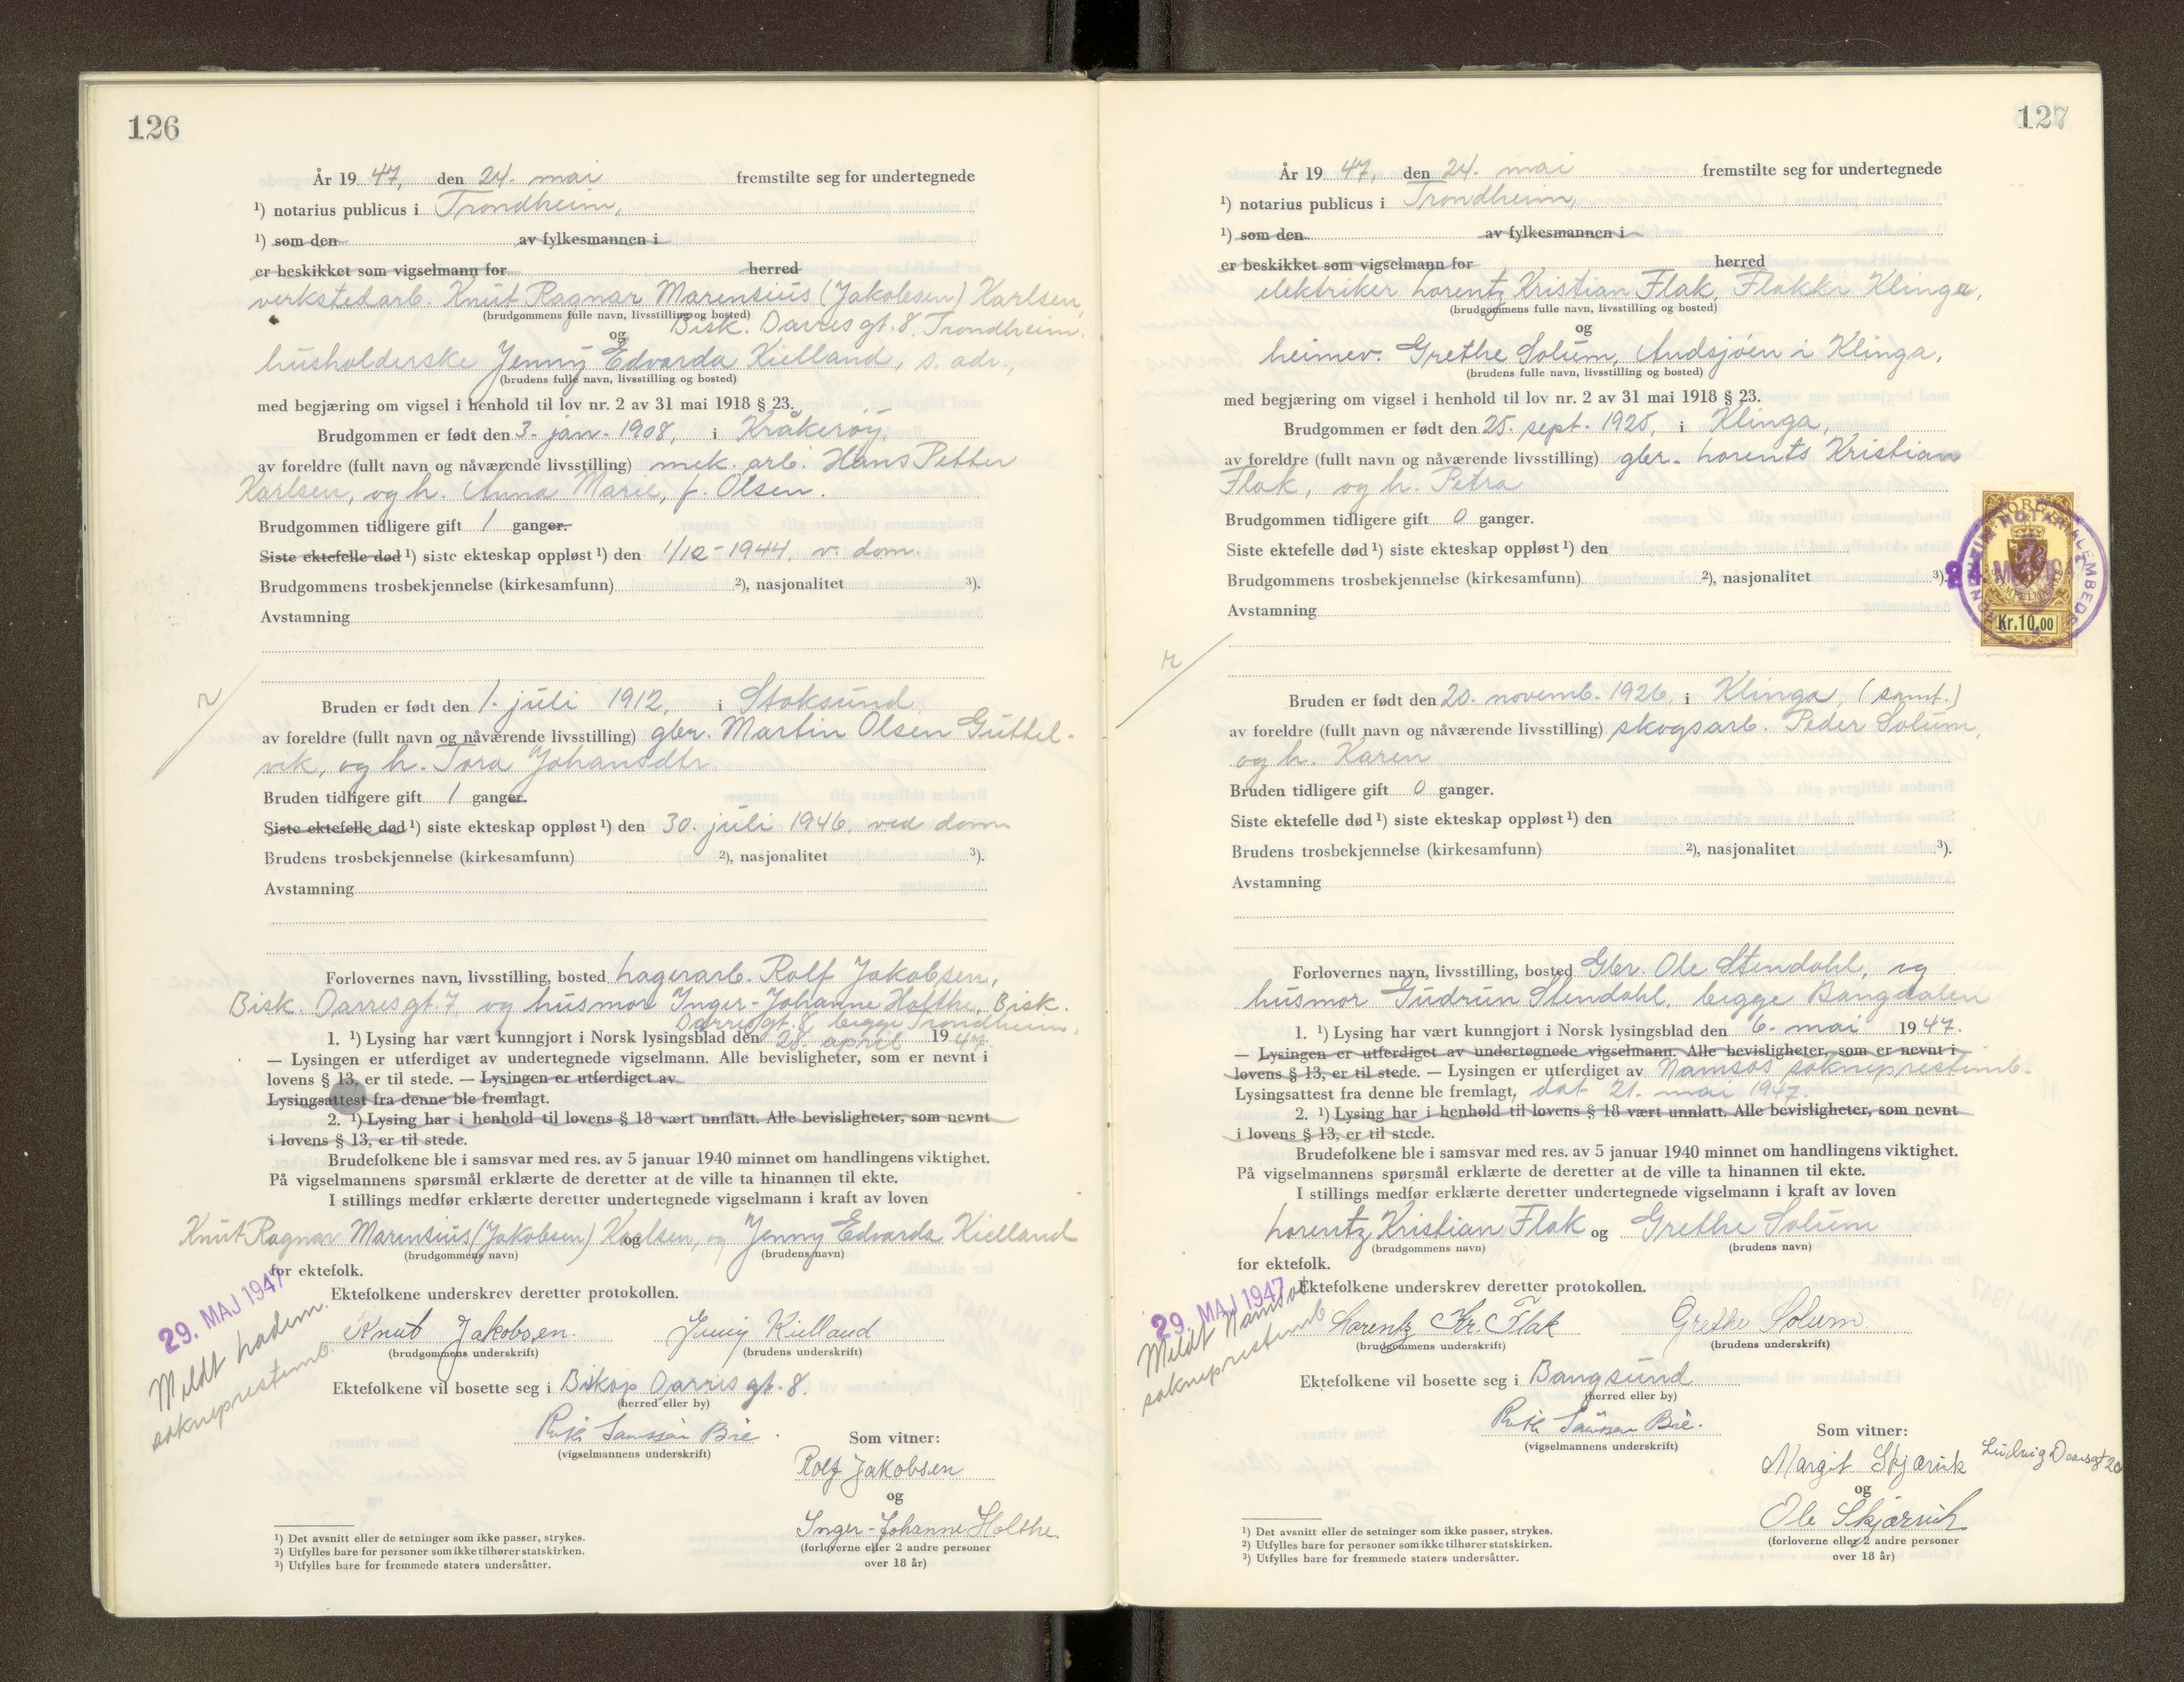 126
År 19 47, den 24. mai fremstilte seg for undertegnede
¹) notarius publicus i Trondheim,
¹) som den av fylkesmannen i
er beskikket som vigselmann for herred
verkstedarb. Knut Ragnar Marensius (Jakobsen) Karlsen,
(brudgommens fulle navn, livsstilling og bosted)
Bisk. Darres gt. 8, Trondheim.
og
husholderske Jenny Edvarda Kielland, s. adr.,
(brudens fulle navn, livsstilling og bosted)
med begjæring om vigsel i henhold til lov nr. 2 av 31 mai 1918 § 23.
Brudgommen er født den 3. jan. 1908, i Kråkerøy,
av foreldre (fullt navn og nåværende livsstilling) mek. arb. Hans Petter
Karlsen, og h. Anna Marie, f. Olsen.
Brudgommen tidligere gift 1 ganger.
Siste ektefelle død ¹) siste ekteskap oppløst ¹) den 1/12-1944, v. dom.
Brudgommens trosbekjennelse (kirkesamfunn) ²), nasjonalitet ³).
Avstamning
Bruden er født den 1. juli 1912, i Stoksund,
av foreldre (fullt navn og nåværende livsstilling) gbr. Martin Olsen Guttel-
vik, og h. Tora Johansdtr.
Bruden tidligere gift 1 ganger.
Siste ektefelle død ¹) siste ekteskap oppløst ¹) den 30. juli 1946, ved dom
Brudens trosbekjennelse (kirkesamfunn) ²), nasjonalitet ³).
Avstamning
Forlovernes navn, livsstilling, bosted Lagerarb. Rolf Jakobsen,
Bisk. Darres gt. 7, og husmor Inger-Johanne Holthe, Bisk.
Darres gt. 8, begge Trondheim,
1. ¹) Lysing har vært kunngjort i Norsk lysingsblad den 28. april 1947.
— Lysingen er utferdiget av undertegnede vigselmann. Alle bevisligheter, som er nevnt i
lovens § 13, er til stede. — Lysingen er utferdiget av
Lysingsattest fra denne ble fremlagt.
2. ¹) Lysing har i henhold til lovens § 18 vært unnlatt. Alle bevisligheter, som nevnt
i lovens § 13, er til stede.
Brudefolkene ble i samsvar med res. av 5 januar 1940 minnet om handlingens viktighet.
På vigselmannens spørsmål erklærte de deretter at de ville ta hinannen til ekte.
I stillings medfør erklærte deretter undertegnede vigselmann i kraft av loven
Knut Ragnar Marensius (Jakobsen) Karlsen, og Jenny Edvarda Kielland
(brudgommens navn) og (brudens navn)
for ektefolk.
29. MAJ 1947
Meldt Ladem.
sokneprestemb.
Ektefolkene underskrev deretter protokollen.
Knut Jakobsen. Jenny Kielland
(brudgommens underskrift) (brudens underskrift)
Ektefolkene vil bosette seg i Biskop Darres gt. 8.
(herred eller by)
(vigselmannens underskrift)
Som vitner:
Rolf Jakobsen
og
Inger-Johanne Holthe.
(forloverne eller 2 andre personer
over 18 år)
¹) Det avsnitt eller de setninger som ikke passer, strykes.
²) Utfylles bare for personer som ikke tilhører statskirken.
³) Utfylles bare for fremmede staters undersåtter.
127
År 19 47, den 24. mai fremstilte seg for undertegnede
¹) notarius publicus i Trondheim,
¹) som den av fylkesmannen i
er beskikket som vigselmann for herred
elektriker Lorentz Kristian Flak, Flakki Klinga,
(brudgommens fulle navn, livsstilling og bosted)
og
heimev. Grethe Solum, Audsjøen i Klinga,
(brudens fulle navn, livsstilling og bosted)
med begjæring om vigsel i henhold til lov nr. 2 av 31 mai 1918 § 23.
Brudgommen er født den 25. sept. 1925, i Klinga,
av foreldre (fullt navn og nåværende livsstilling) gbr. Lorents Kristian
Flak, og h. Petra
Brudgommen tidligere gift 0 ganger.
Siste ektefelle død ¹) siste ekteskap oppløst ¹) den
Brudgommens trosbekjennelse (kirkesamfunn) ²), nasjonalitet ³).
Avstamning
Kr.10,00
Bruden er født den 20. novemb. 1926, i Klinga, (samt.)
av foreldre (fullt navn og nåværende livsstilling) skogsarb. Peder Solum,
og h. Karen
Bruden tidligere gift 0 ganger.
Siste ektefelle død ¹) siste ekteskap oppløst ¹) den
Brudens trosbekjennelse (kirkesamfunn) ²), nasjonalitet ³).
Avstamning
Forlovernes navn, livsstilling, bosted Gbr. Ole Stendahl, og
husmor Gudrun Stendahl, begge Bangdalen
1. ¹) Lysing har vært kunngjort i Norsk lysingsblad den 6. mai 1947.
— Lysingen er utferdiget av undertegnede vigselmann. Alle bevisligheter, som er nevnt i
lovens § 13, er til stede. — Lysingen er utferdiget av Namsos sokneprestemb.
Lysingsattest fra denne ble fremlagt, dat 21. mai 1947.
2. ¹) Lysing har i henhold til lovens § 18 vært unnlatt. Alle bevisligheter, som nevnt
i lovens § 13, er til stede.
Brudefolkene ble i samsvar med res. av 5 januar 1940 minnet om handlingens viktighet.
På vigselmannens spørsmål erklærte de deretter at de ville ta hinannen til ekte.
I stillings medfør erklærte deretter undertegnede vigselmann i kraft av loven
Lorentz Kristian Flak og Grethe Solum
(brudgommens navn) (brudens navn)
for ektefolk.
29. MAJ 1947
Meldt Namsos
sokneprestemb.
Ektefolkene underskrev deretter protokollen.
Lorentz Kr. Flak Grethe Solum
(brudgommens underskrift) (brudens underskrift)
Ektefolkene vil bosette seg i Bangsund
(herred eller by)
(vigselmannens underskrift)
Som vitner:
Margit Skjærvik
og
Ole Skjærvik
(forloverne eller 2 andre personer
over 18 år)
¹) Det avsnitt eller de setninger som ikke passer, strykes.
²) Utfylles bare for personer som ikke tilhører statskirken.
³) Utfylles bare for fremmede staters undersåtter.